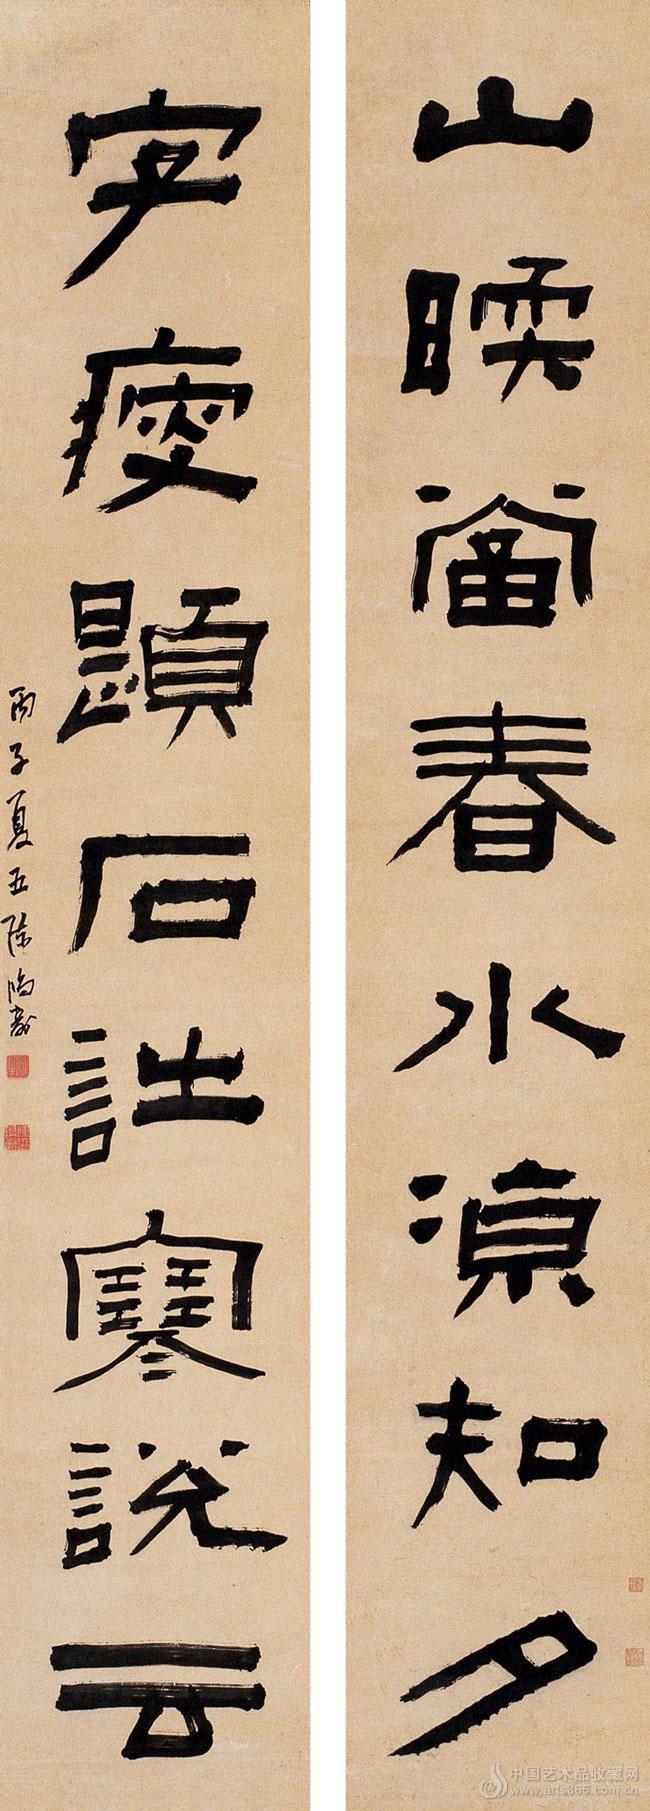 山暖留春水涼知夕
字瘦題石詩寒說云
丙子夏五陳鴻壽
中国艺术品收藏网
www.arts365.com.cn